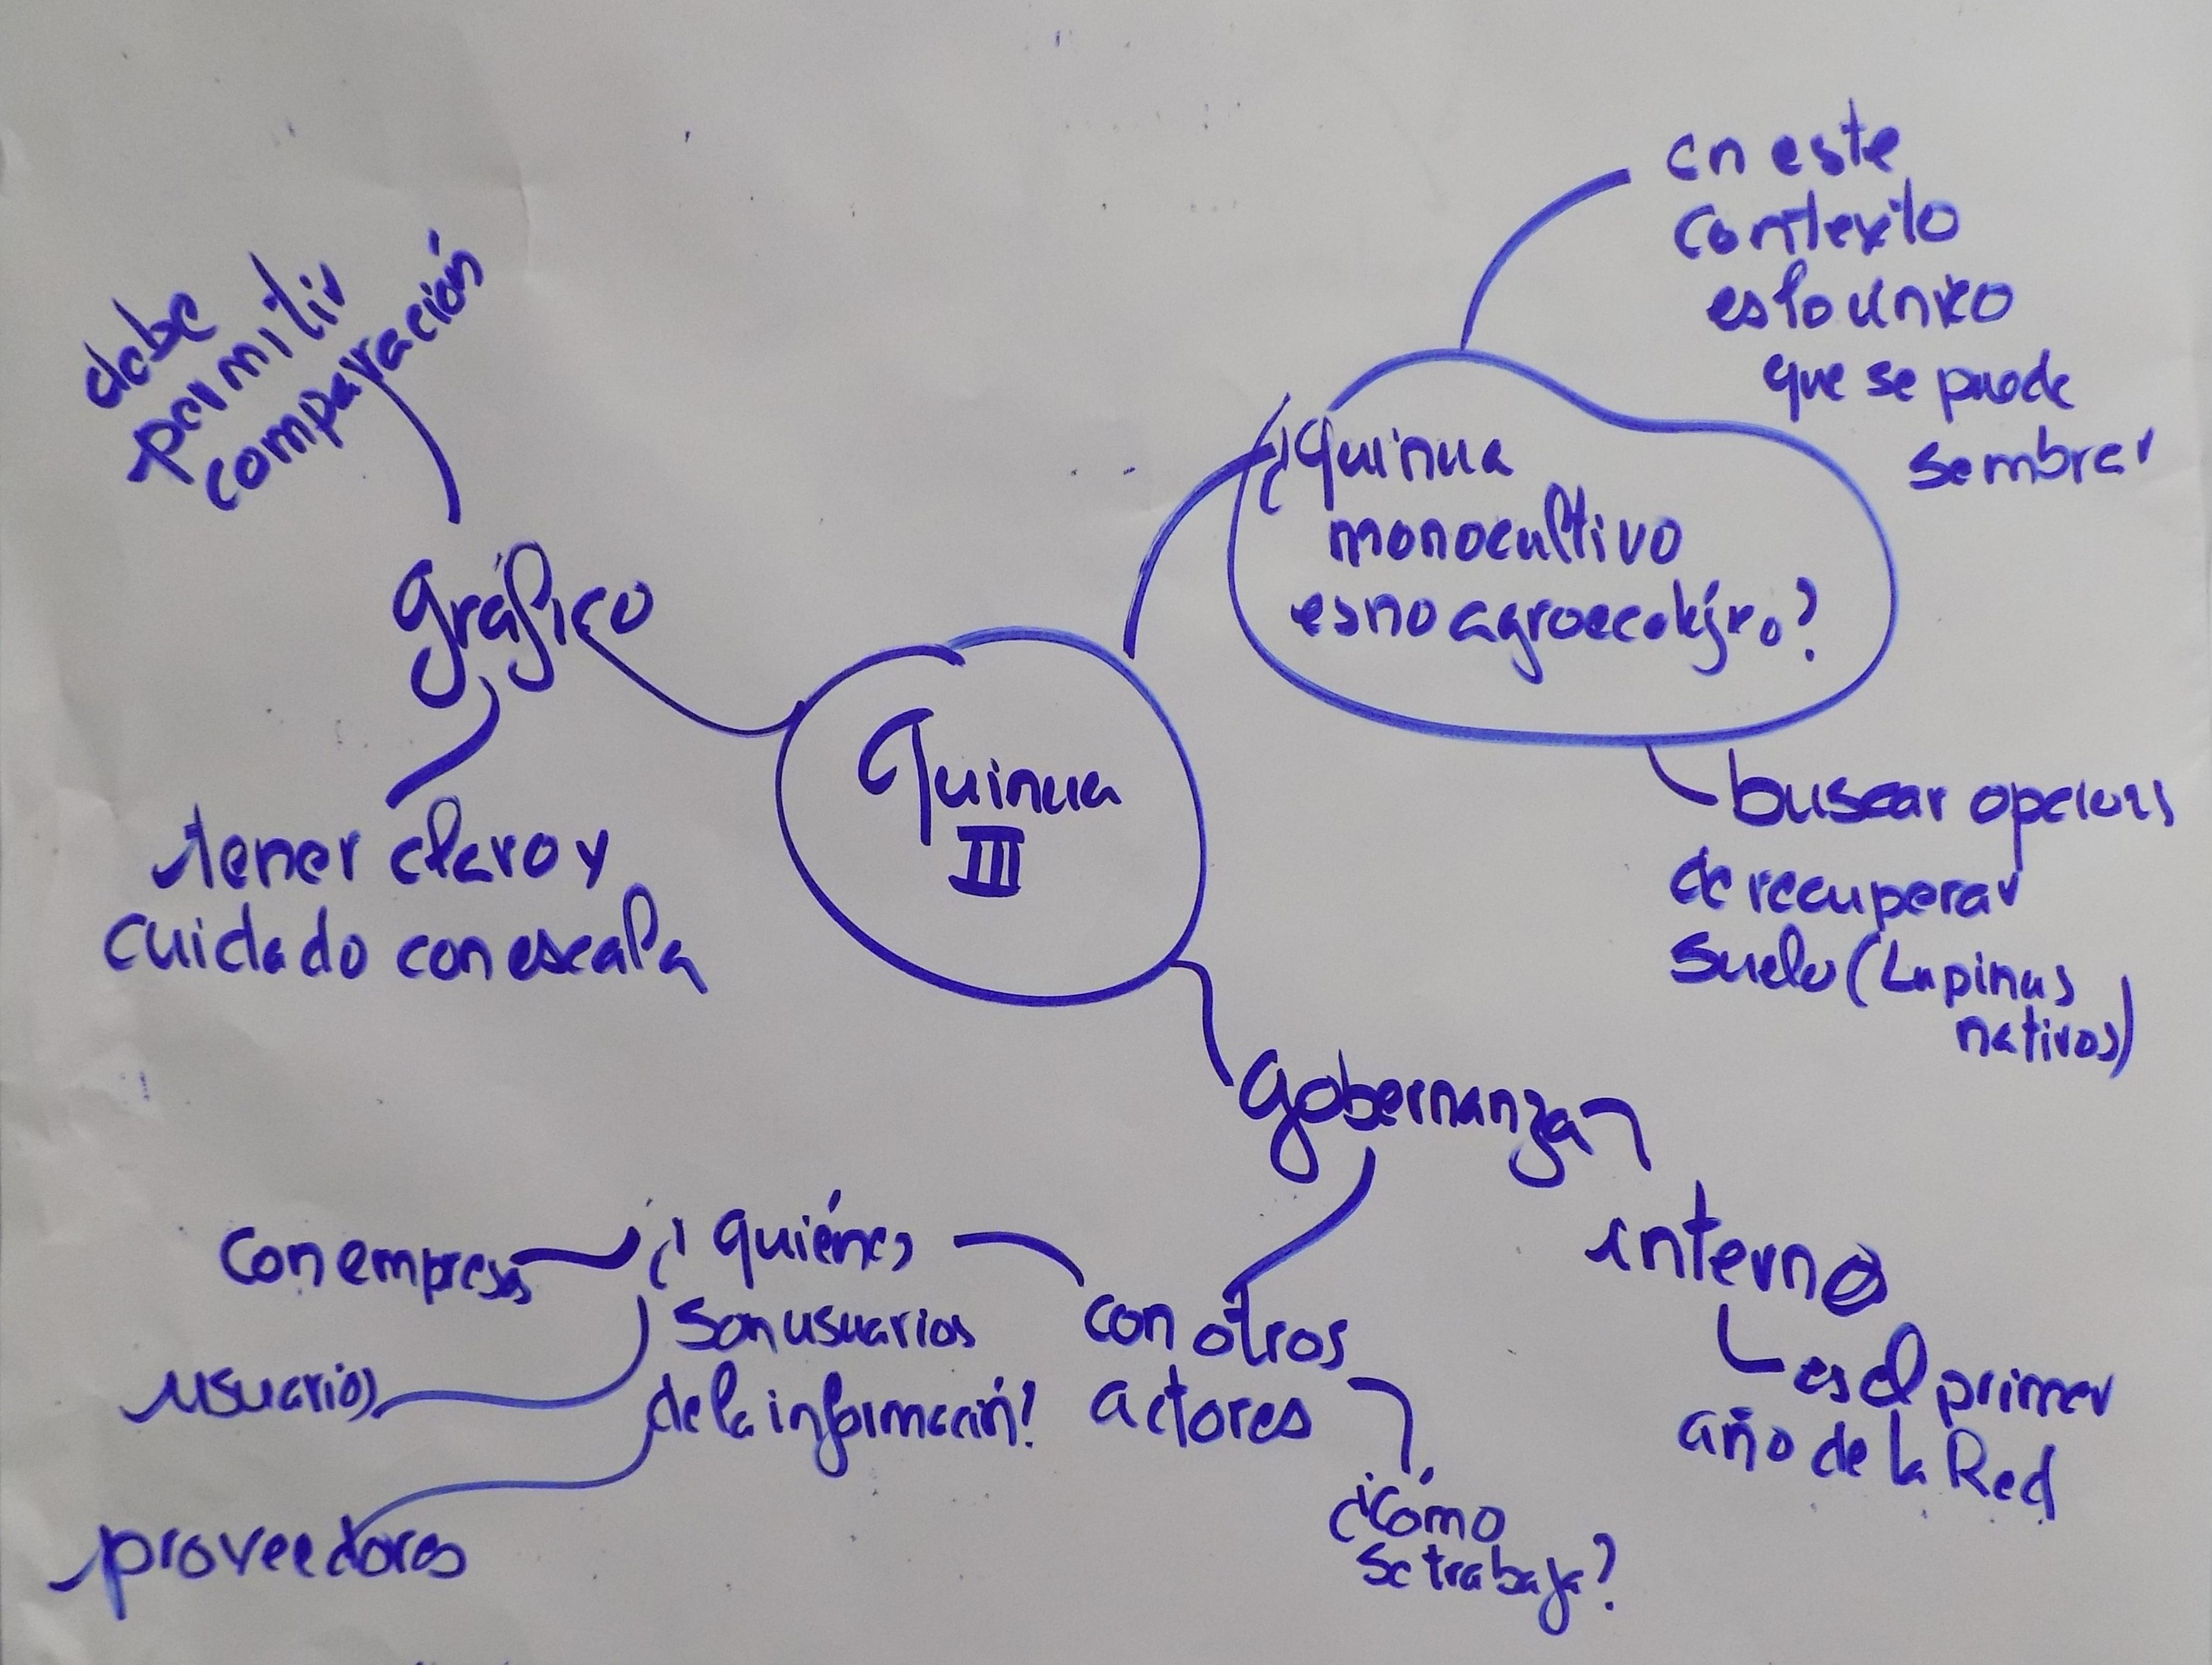 debe
permitir
comparación
gráfico
tener claro y
cuidado con escala
Quinua
III
¿quinua
monocultivo
es no agroecológico?
en este
contexto
es lo único
que se puede
sembrar
buscar opciones
de recuperar
suelo (Lupinus
nativos)
gobernanza
interna
es el primer
año de la Red
con otros
actores
¿cómo
se trabaja?
¿quiénes
son usuarios
de la información?
con empresas
usuarios
proveedores